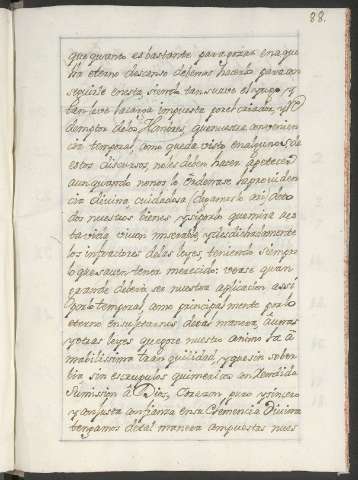 88.
que quanto es bastante para gozar en aque
lla eterno descanso debemos hacerlo para con
seguirle en esta, siendo tan suave el yugo, y
tan leve la carga impuesta por el Criador, y Re
demptor de los Hombres, que nuestra convenien
cia temporal, como queda visto en algunos de
estos discursos, nos le deben hacer apetecer
aun quando no nos lo ordenase su providen
cia divina cuidadosa
da nuestros bienes y siguro que mira a es
ta vida, vivan miserable, y desdichadamente
los infractores de las leyes, teniendo siempre
lo que saven tener merecido: vease quan
grande deberia ser nuestra aplicacion assi
por lo temporal, como principalmente por lo
eterno
y otras leyes que pose nuestro animo la a
mabilissima tranquilidad, y que sin sober
bia sin escrupulos quimericos con rendida
sumission à Dios, corazon puro y sincero
y con justa confianza en su Clemencia Divina
tengamos de tal manera compuestas nues